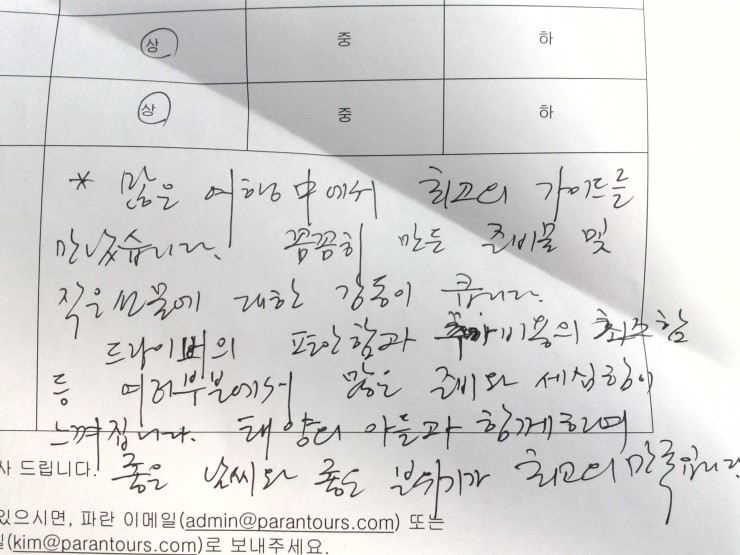 상 중 하
상 중 하
* 많은 여행 中에서 최고의 가이드를
만났습니다. 꼼꼼히 만든 준비물 및
작은선물에 대한 감동이 큽니다.
드라이버의 편안함과 추가비용의 최소함
등 여러부분에서 많은 준비와 세심함이
느껴집니다. 태양의 아들과 함께하며
사 드립니다. 좋은 날씨와 좋은 분위기가 최고의 만족입니다.
있으시면, 파란 이메일(admin@parantours.com) 또는
일(kim@parantours.com)로 보내주세요.